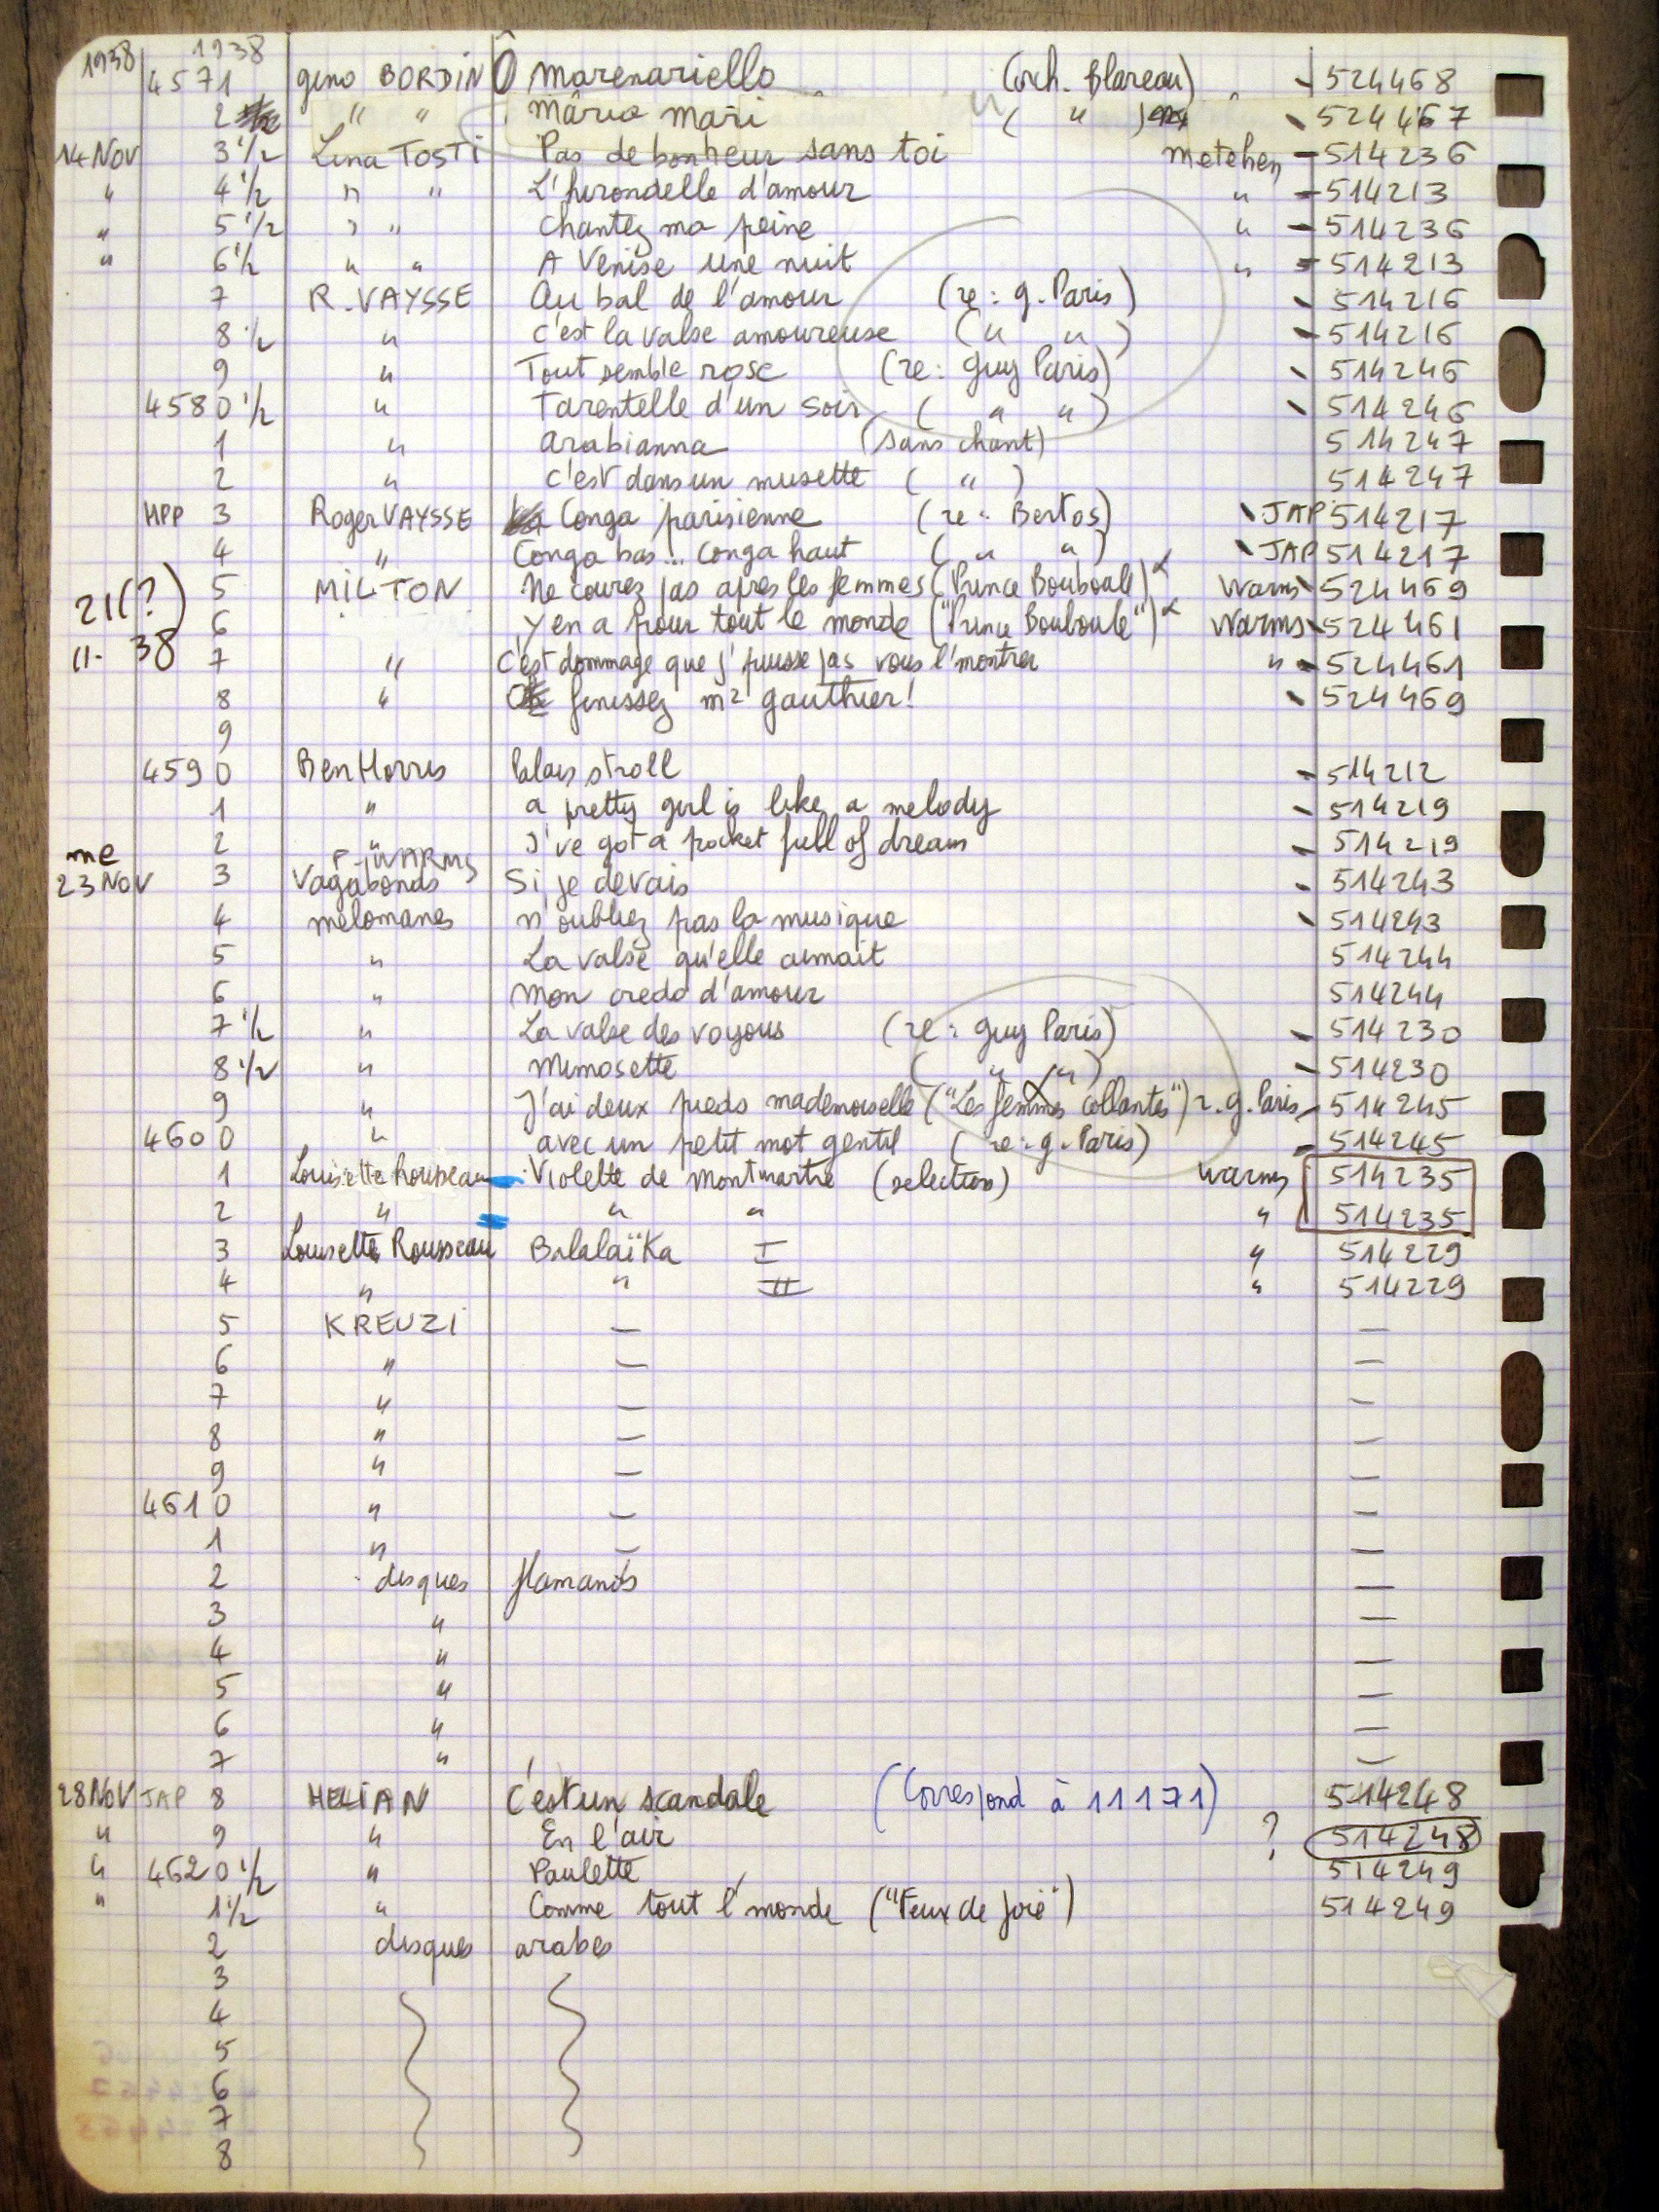 1938 1938
4571 Gino BORDIN Ô marenariello (orch. Blareau) - 524468
2 " " Mâria Mari ( " ) - 524467
14 Nov 3 1/2 Lina TOSTI Pas de bonheur sans toi Metehen - 514236
" 4 1/2 " " L'hirondelle d'amour " - 514213
" 5 1/2 " " Chantez ma peine " - 514236
" 6 1/2 " " A Venise une nuit " - 514213
7 R. VAYSSE Au bal de l'amour (re: g. Paris) - 514216
8 1/2 " C'est la valse amoureuse ( " " ) - 514216
9 " Tout semble rose (re: Guy Paris) - 514246
4580 1/2 " Tarentelle d'un soir ( " " ) - 514246
1 " Arabianna (sans chant) 514247
2 " C'est dans un musette ( " ) 514247
HPP 3 Roger VAYSSE Conga parisienne (re: Bertos) - JAP 514217
4 " Conga bas... Conga haut ( " " ) - JAP 514217
21(?) 5 MILTON Ne courez pas apres les femmes (Prince Bouboule) Warms - 524469
6 y en a pour tout le monde ("Prince Bouboule") Warms - 524461
11-38 7 " C'est dommage que j'puisse pas vous l'montrer " - 524461
8 " finissez mr Gauthier! - 524469
9
4590 Ben Horris Palais stroll - 514212
1 " a pretty girl is like a melody - 514219
2 " I've got a pocket full of dream - 514219
me F. WARMS
23 NOV 3 Vagabonds Si je devais - 514243
4 melomanes n'oubliez pas la musique - 514243
5 " La valse qu'elle aimait 514244
6 " Mon credo d'amour 514244
7 1/2 " La valse des voyous (re: Guy Paris) - 514230
8 1/2 " Mimosette ( " " ) - 514230
9 " J'ai deux pieds mademoiselle ("Les femmes collantes") r. g. Paris - 514245
4600 " avec un petit mot gentil (re: g. Paris) - 514245
1 Louisette Rousseau Violette de Montmartre (selection) Warms 514235
2 " " " " 514235
3 Louisette Rousseau Balalaïka I " 514229
4 " " II " 514229
5 KREUZI — —
6 " — —
7 " — —
8 " — —
9 " — —
4610 " — —
1 " — —
2 disques flamands —
3 " —
4 " —
5 " —
6 " —
7 " —
28 NOV JAP 8 HELIAN C'est un scandale (Correspond à 11171) 514248
" 9 " En l'air ? 514248
" 4620 1/2 " Paulette 514249
" 1 1/2 " Comme tout l'monde ("Feux de joie") 514249
2 disques arabes
3
4
5
6
7
8